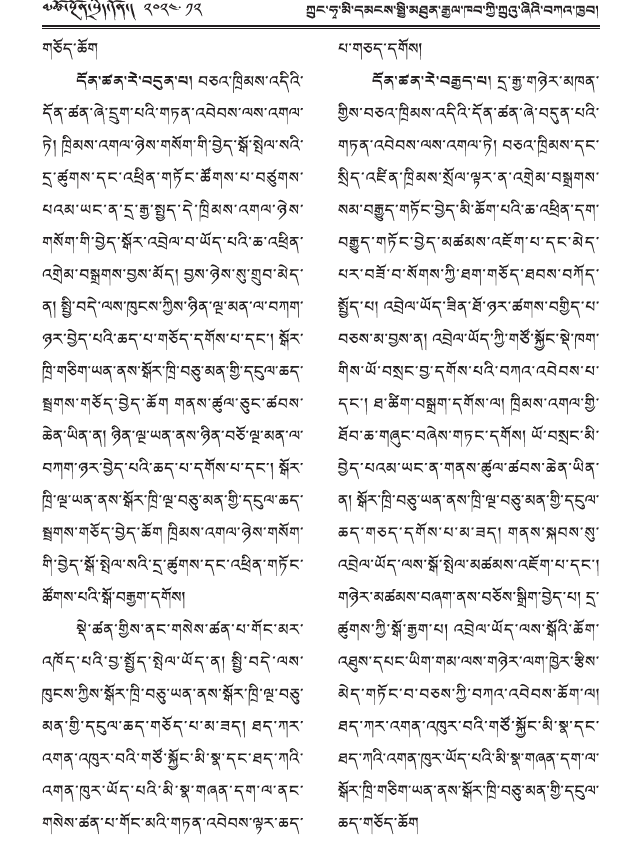 ༢༠༢༤.༡༢
ཀྲུང་ཧྭ་མི་དམངས་སྤྱི་མཐུན་རྒྱལ་ཁབ་ཀྱི་ཀྲུའུ་ཞིའི་བཀའ་ཁྱབ།
གཅོད་ཆོག
དོན་ཚན་རེ་བདུན་པ། བཅའ་ཁྲིམས་འདིའི་
དོན་ཚན་ཞེ་དྲུག་པའི་གཏན་འབེབས་ལས་འགལ་
ཏེ། ཁྲིམས་འགལ་ཉེས་གསོག་གི་བྱེད་སྒོ་སྤེལ་སའི་
དྲ་ཚུགས་དང་འཕྲིན་གཏོང་ཚོགས་པ་བཙུགས་
པའམ་ཡང་ན་དྲ་རྒྱ་སྤྱད་དེ་ཁྲིམས་འགལ་ཉེས་
གསོག་གི་བྱེད་སྒོར་འབྲེལ་བ་ཡོད་པའི་ཆ་འཕྲིན་
འགྲེམ་བསྒྲགས་བྱས་མོད། བྱས་ཉེས་སུ་གྲུབ་མེད་
ན། སྤྱི་བདེ་ལས་ཁུངས་ཀྱིས་ཉིན་ལྔ་མན་ལ་བཀག་
ཉར་བྱེད་པའི་ཆད་པ་གཅོད་དགོས་པ་དང་། སྒོར་
ཁྲི་གཅིག་ཡན་ནས་སྒོར་ཁྲི་བཅུ་མན་གྱི་དངུལ་ཆད་
སྦྲགས་གཅོད་བྱེད་ཆོག གནས་ཚུལ་ཅུང་ཚབས་
ཆེན་ཡིན་ན། ཉིན་ལྔ་ཡན་ནས་ཉིན་བཅོ་ལྔ་མན་ལ་
བཀག་ཉར་བྱེད་པའི་ཆད་པ་དགོས་པ་དང་། སྒོར་
ཁྲི་ལྔ་ཡན་ནས་སྒོར་ཁྲི་ལྔ་བཅུ་མན་གྱི་དངུལ་ཆད་
སྦྲགས་གཅོད་བྱེད་ཆོག ཁྲིམས་འགལ་ཉེས་གསོག་
གི་བྱེད་སྒོ་སྤེལ་སའི་དྲ་ཚུགས་དང་འཕྲིན་གཏོང་
ཚོགས་པའི་སྒོ་བརྒྱག་དགོས།
སྡེ་ཚན་གྱིས་ནང་གསེས་ཚན་པ་གོང་མར་
འཁོད་པའི་བྱ་སྤྱོད་སྤེལ་ཡོད་ན། སྤྱི་བདེ་ལས་
ཁུངས་ཀྱིས་སྒོར་ཁྲི་བཅུ་ཡན་ནས་སྒོར་ཁྲི་ལྔ་བཅུ་
མན་གྱི་དངུལ་ཆད་གཅོད་པ་མ་ཟད། ཐད་ཀར་
འགན་འཁུར་བའི་གཙོ་སྐྱོང་མི་སྣ་དང་ཐད་ཀའི་
འགན་ཁུར་ཡོད་པའི་མི་སྣ་གཞན་དག་ལ་ནང་
གསེས་ཚན་པ་གོང་མའི་གཏན་འབེབས་ལྟར་ཆད་
པ་གཅད་དགོས།
དོན་ཚན་རེ་བརྒྱད་པ། དྲ་རྒྱ་གཉེར་མཁན་
གྱིས་བཅའ་ཁྲིམས་འདིའི་དོན་ཚན་ཞེ་བདུན་པའི་
གཏན་འབེབས་ལས་འགལ་ཏེ། བཅའ་ཁྲིམས་དང་
སྲིད་འཛིན་ཁྲིམས་སྲོལ་ལྟར་ན་འགྲེམ་བསྒྲགས་
སམ་བརྒྱུད་གཏོང་བྱེད་མི་ཆོག་པའི་ཆ་འཕྲིན་དག་
བརྒྱུད་གཏོང་བྱེད་མཚམས་འཇོག་པ་དང་མེད་
པར་བཟོ་བ་སོགས་ཀྱི་ཐག་གཅོད་ཐབས་བཀོད་
སྤྱོད་པ། འབྲེལ་ཡོད་ཟིན་ཐོ་ཉར་ཚགས་བགྱིད་པ་
བཅས་མ་བྱས་ན། འབྲེལ་ཡོད་ཀྱི་གཙོ་སྐྱོང་སྡེ་ཁག་
གིས་ཡོ་བསྲང་བྱ་དགོས་པའི་བཀའ་འབེབས་པ་
དང་། ཐ་ཚིག་བསྒྲག་དགོས་ལ། ཁྲིམས་འགལ་གྱི་
ཐོབ་ཆ་གཞུང་བཞེས་གཏང་དགོས། ཡོ་བསྲང་མི་
བྱེད་པའམ་ཡང་ན་གནས་ཚུལ་ཚབས་ཆེན་ཡིན་
ན། སྒོར་ཁྲི་བཅུ་ཡན་ནས་ཁྲི་ལྔ་བཅུ་མན་གྱི་དངུལ་
ཆད་གཅད་དགོས་པ་མ་ཟད། གནས་སྐབས་སུ་
འབྲེལ་ཡོད་ལས་སྒོ་སྤེལ་མཚམས་འཇོག་པ་དང་།
གཉེར་མཚམས་བཞག་ནས་བཅོས་སྒྲིག་བྱེད་པ། དྲ་
ཚུགས་ཀྱི་སྒོ་རྒྱག་པ། འབྲེལ་ཡོད་ལས་སྒོའི་ཆོག་
འཐུས་དཔང་ཡིག་གམ་ལས་གཉེར་ལག་ཁྱེར་རྩིས་
མེད་གཏོང་བ་བཅས་ཀྱི་བཀའ་འབེབས་ཆོག་ལ།
ཐད་ཀར་འགན་འཁུར་བའི་གཙོ་སྐྱོང་མི་སྣ་དང་
ཐད་ཀའི་འགན་ཁུར་ཡོད་པའི་མི་སྣ་གཞན་དག་ལ་
སྒོར་ཁྲི་གཅིག་ཡན་ནས་སྒོར་ཁྲི་བཅུ་མན་གྱི་དངུལ་
ཆད་གཅོད་ཆོག